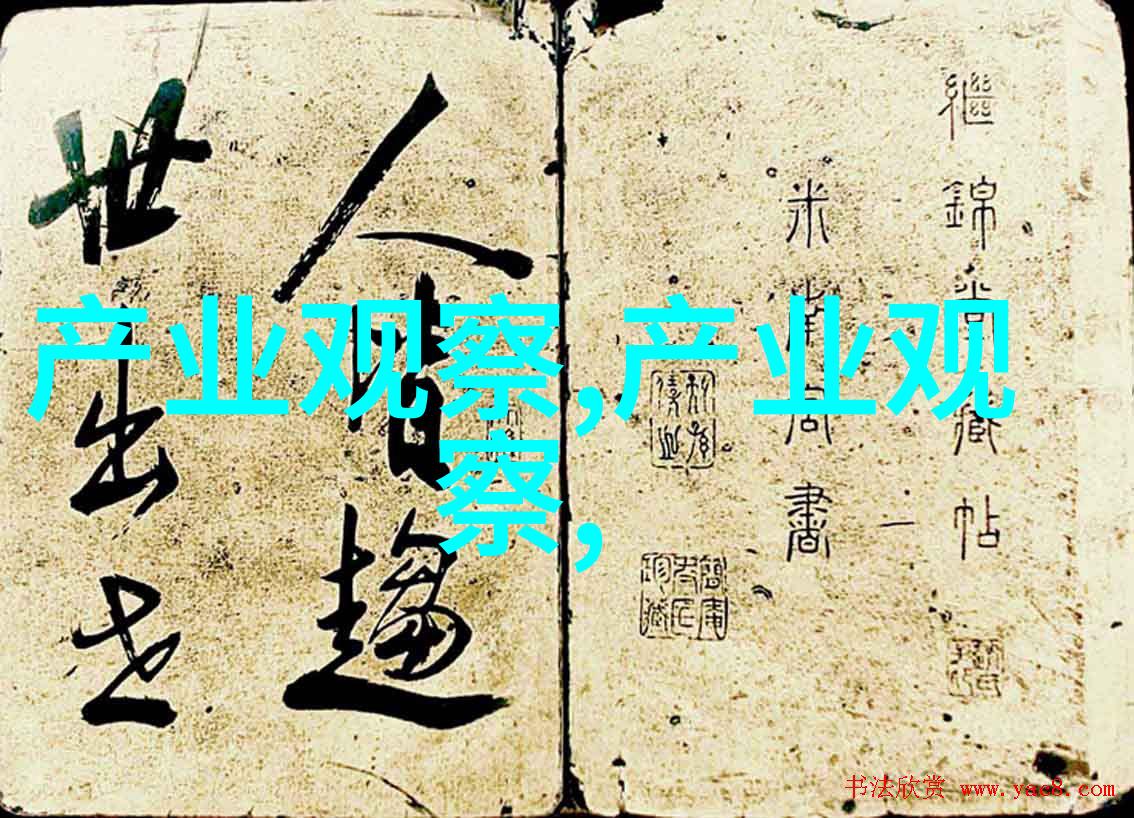 繼錦堂藏帖
一
米
書
人皆趨
世出世
产业观察,产业观
察,
书法欣赏 www.yac8.com